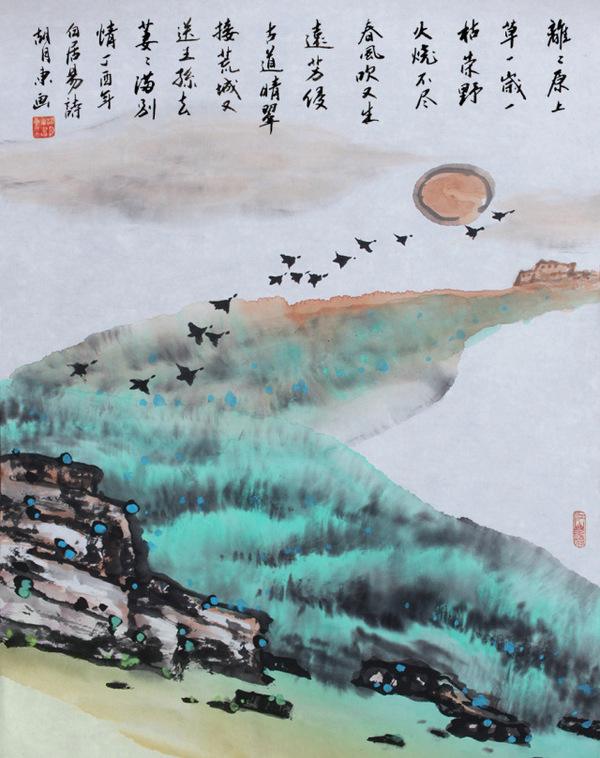 離〻原上
草一歲一
枯榮野
火燒不尽
春風吹又生
遠芳侵
古道晴翠
接荒城又
送王孫去
萋〻滿别
情丁酉年
白居易詩
胡月東画